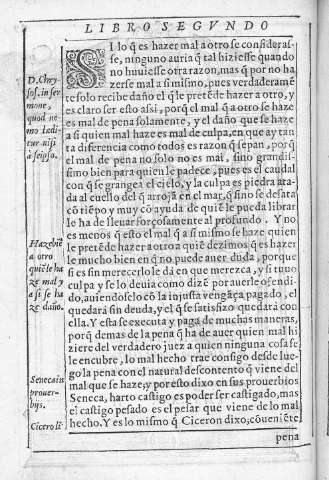 LIBRO SEGVNDO
SI lo q̃ es hazer mal a otro se consideras-
se, ninguno auria q̃ tal hiziesse quando
no huuiesse otra razon, mas q̃ por no ha
zerse mal a si mismo, pues verdaderamẽ
te solo recibe daño el q̃ le pretẽde hazer a otro, y
es claro ser esto assi, porq̃ el mal q̃ a otro se haze
es mal de pena solamente, y el daño que se haze
a si quien mal haze es mal de culpa, en que ay tan
ta diferencia como todos es razon q̃ sepan, por q̃
el mal de pena no solo no es mal, sino grandis-
simo bien para quien le padece, pues es el caudal
con q̃ se grangea el cielo, y la culpa es piedra ata-
da al cuello del q̃ arrojã en el mar, q̃ sino se desata
cõ tiẽpo y muy cõ ayuda de quiẽ le pueda librar
le ha de lleuar forçosamente al profundo. Y no
es menos q̃ esto el mal q̃ a si mismo se haze quien
le pretẽde hazer a otro a quiẽ dezimos q̃ es hazer
le mucho bien en q̃ no puede auer duda, porque
si es sin merecerlo le dà en que merezca, y si tuuo
culpa y se lo deuia como dizẽ por auerle ofendi-
do, auiendoselo cõ la injusta vengãça pagado, el
quedarà sin deuda, y el q̃ se satisfizo quedarà con
ella. Y esta se executa y paga de muchas maneras,
porq̃ demas de la pena q̃ ha de auer quien mal hi
ziere del verdadero juez a quien ninguna cosa se
le encubre, lo mal hecho trae consigo desde lue-
go la pena con el natural descontento q̃ viene del
mal que se haze; y por esto dixo en sus prouerbios
Seneca, harto castigo es poder ser castigado, mas
el castigo pesado es el pesar que viene de lo mal
hecho. Y es lo mismo q̃ Ciceron dixo; cõuenićte
pena
D. Chry
sos. in ser
mone,
quod ne-
mo ledi-
tur nisi
à seipso.
Haze biẽ
a otro
quiẽ le ha
ze mal y
a si se ha
ze daño.
Seneca in
prouer-
bijs.
Cicero li